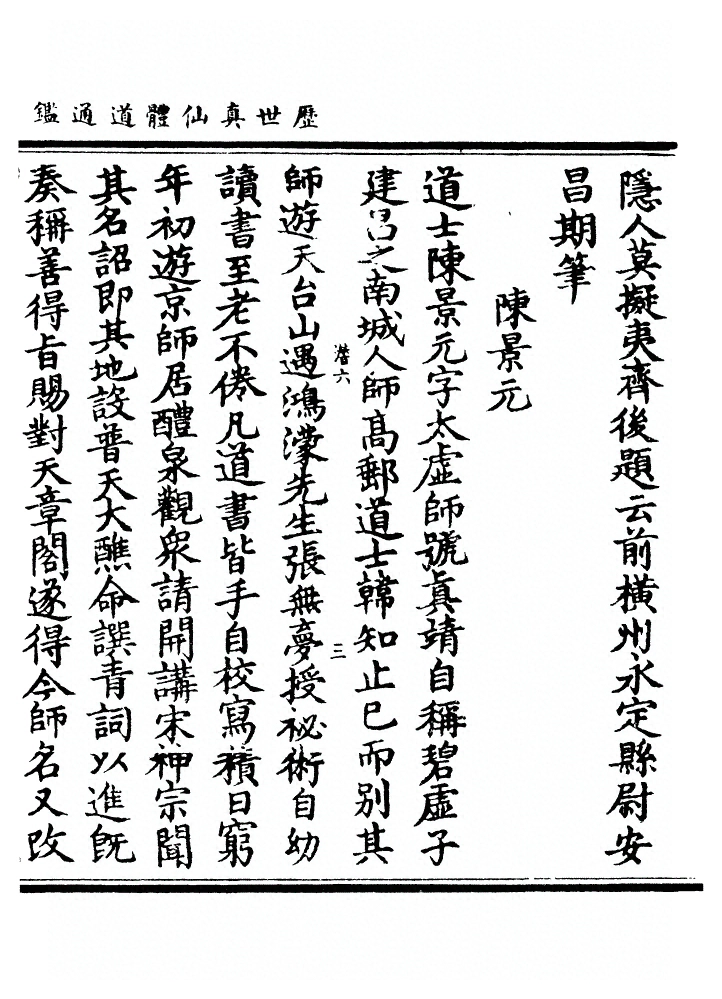 歷世真仙體道通鑑
隱人莫擬夷齊後題云前橫州永定縣尉安
昌期筆
陳景元
道士陳景元字太虛師號真靖自稱碧虛子
建昌之南城人師高郵道士韓知止已而別其
師遊天台山遇鴻濛先生張無夢授祕術自幼
潛六
三
讀書至老不倦凡道書皆手自校寫積日窮
年初遊京師居醴泉觀衆請開講宋神宗聞
其名詔即其地設普天大醮命譔青詞以進既
奏稱善得旨賜對天章閣遂得今師名又改